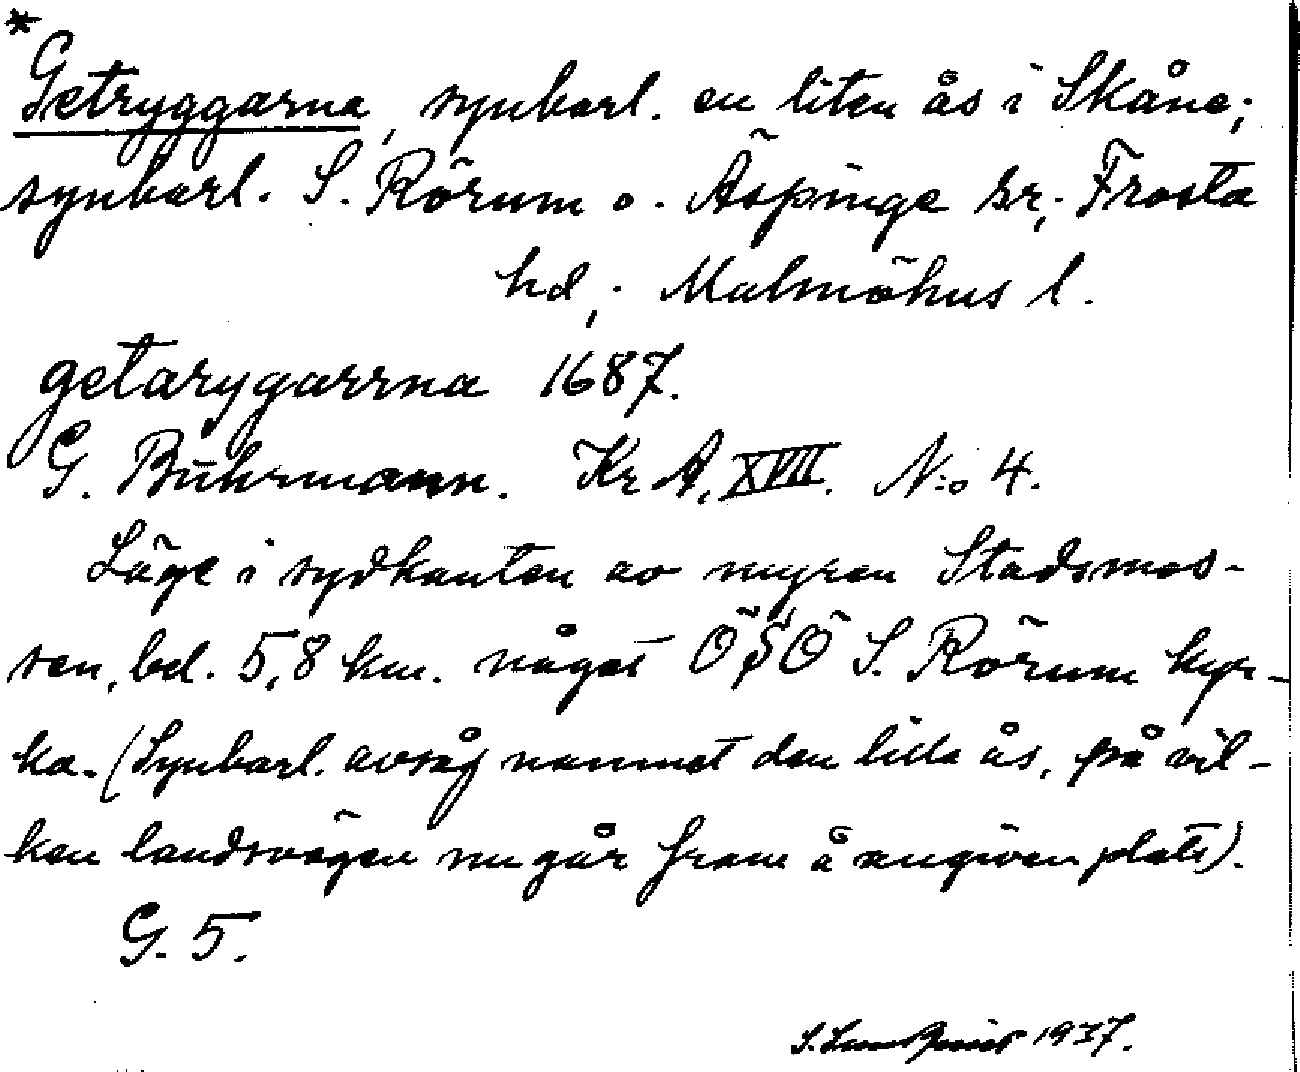 *
Getryggarna, synbarl. en liten ås i Skåne;
synbarl. S. Rörum o. Äspinge sr; Frosta
hd; Malmöhus l.
getarygarrna 1687.
G. Buhrmann. Kr A. XVII. N:o 4.
Läge i sydkanten av myren Stadsmos-
sen, bel. 5,8 km. något ÖSÖ S. Rörum kyr-
ka. (Synbarl. avsåg namnet den lilla ås, på vil-
ken landsvägen nu går fram å angiven plats).
G. 5.
1937.